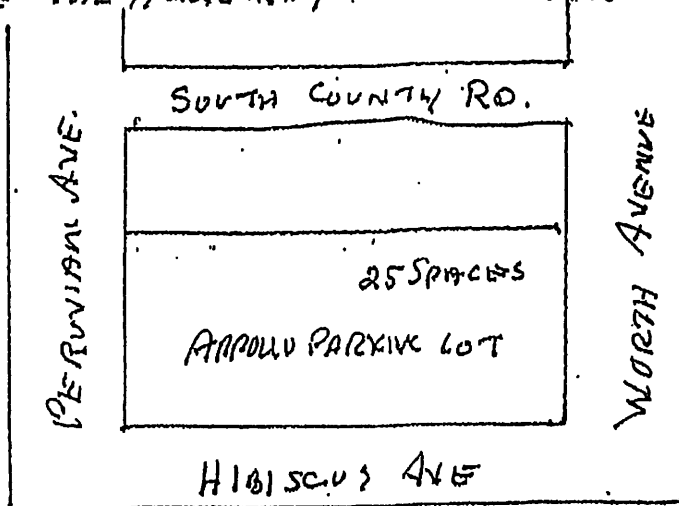 SOUTH COUNTY RD.
PERUVIAN AVE.
WORTH AVENUE
25 SPACES
APPOLLO PARKING LOT
HIBISCUS AVE